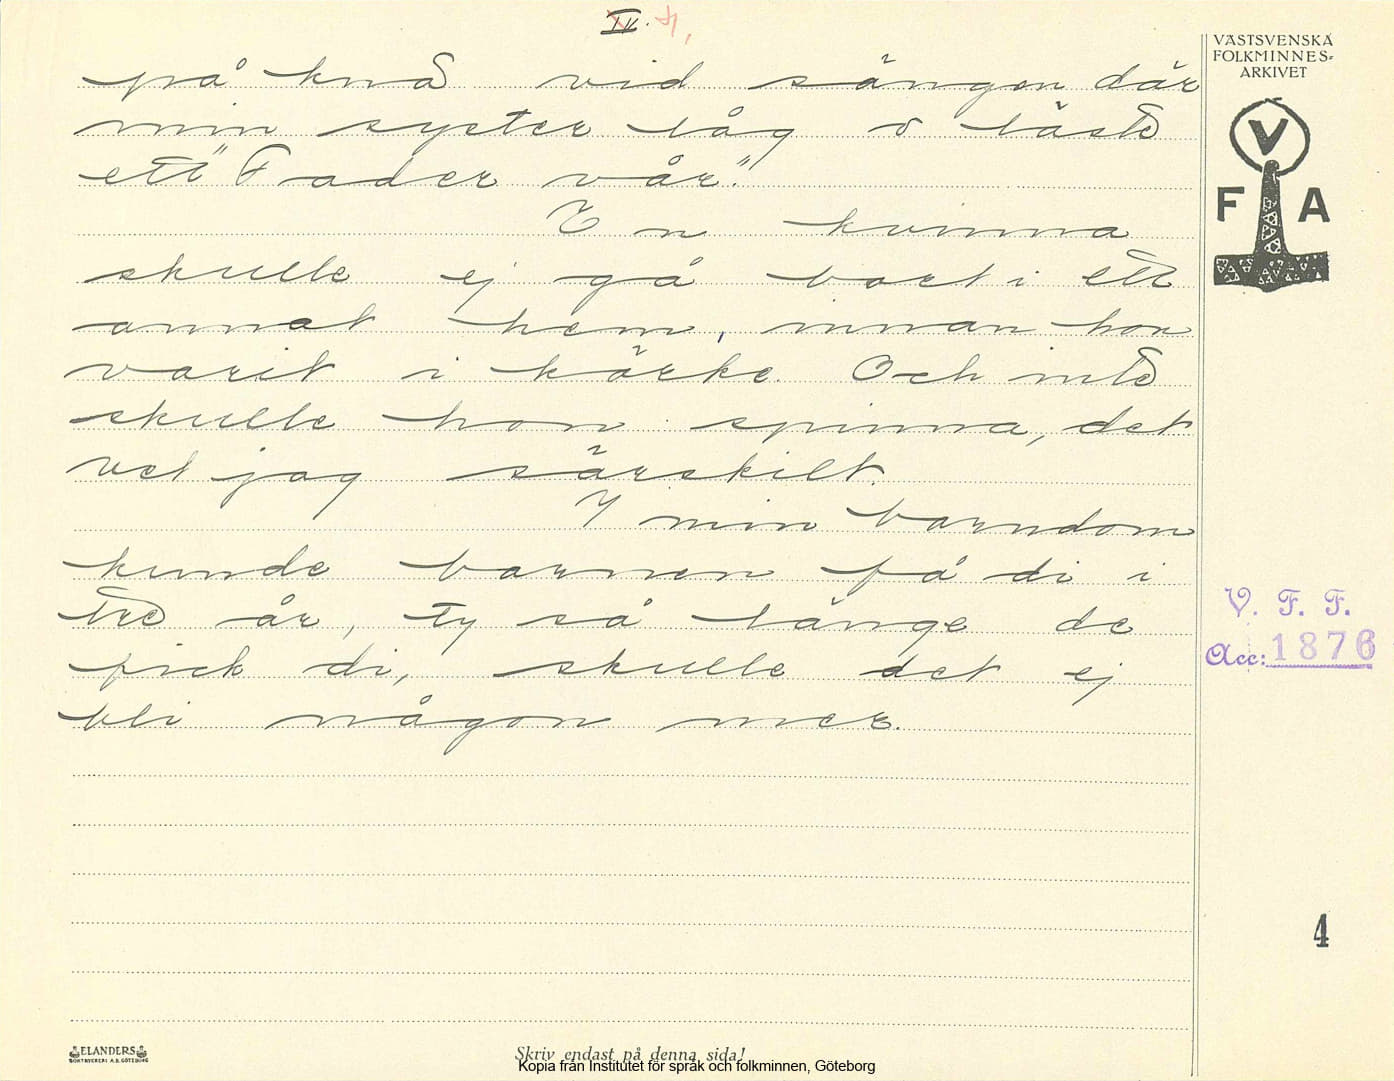 IV. 4,
på knä vid sängen där
min syster låg o läste
ett "Fader vår."
En kvinna
skulle ej gå bort i ett
annat hem, innan hon
varit i körke. Och inte
skulle hon spinna, det
vet jag särskilt.
I min barndom
kunde barnen få di i
tre år, ty så länge de
fick di, skulle det ej
bli någon mer.
VÄSTSVENSKA
FOLKMINNES-
ARKIVET
V
F A
V. F. F.
Acc: 1876
4
ELANDERS
BOKTRYCKERI A.B. GÖTEBORG
Skriv endast på denna sida!
Kopia från Institutet för språk och folkminnen, Göteborg